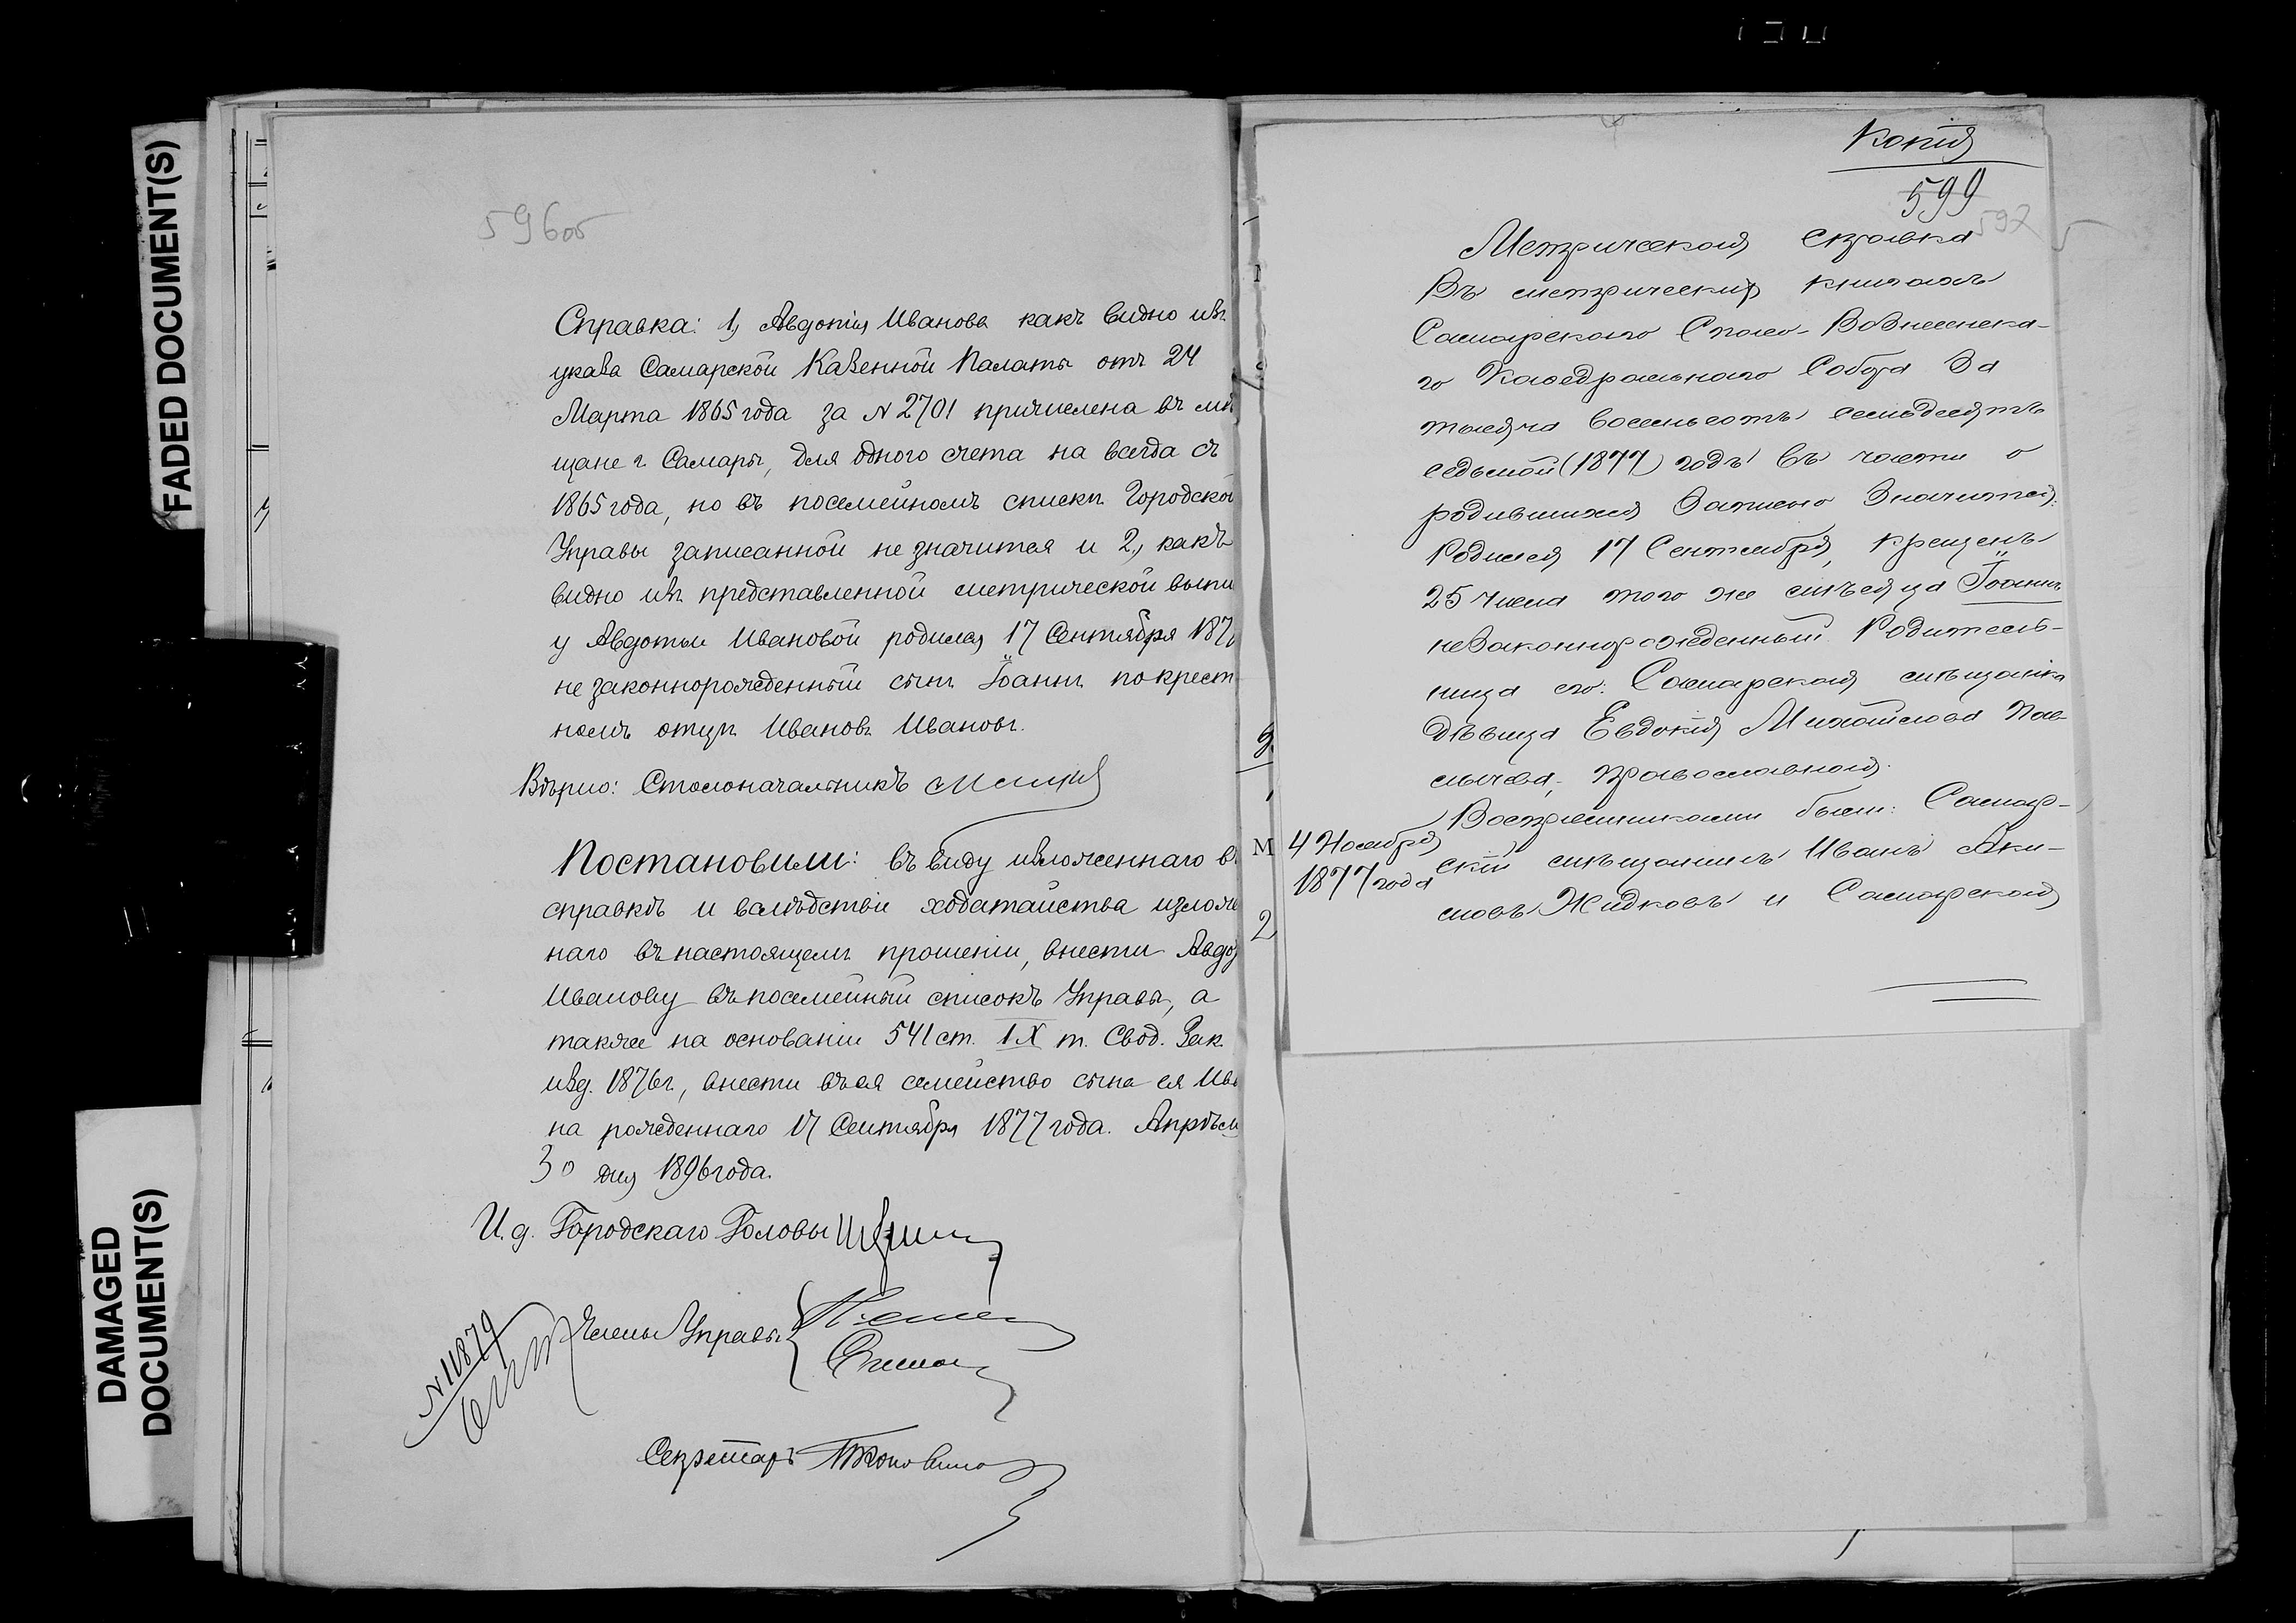 FADED DOCUMENT(S)
DAMAGED
DOCUMENT(S)
596об
Справка: 1, Авдотія Иванова какъ видно изъ
указа Самарской Казенной Палаты отъ 24
Марта 1865 года за N 2701 причислена въ мѣ
щане г. Самары, для одного счета на всегда съ
1865 года, но въ посемейномъ спискѣ Городской
Управы записанной не значится и 2, какъ
видно изъ представленной метрической выпи
у Авдотьи Ивановой родился 17 Сентября 187
не законнорожденный сынъ Іоаннъ по крест
номъ отцѣ Ивановъ Ивановъ.
Вѣрно: Столоначальникъ
Постановили: въ виду изложеннаго въ
справкѣ и вслѣдствіи ходатайства изложе
наго въ настоящемъ прошеніи, внести Авдо
Иванову въ посемейный списокъ Управы, а
также на основаніи 541 ст. IX т. Свод. Зак.
изд. 1876 г, внести въ ея семейство сына ея Ива
на рожденнаго 17 Сентября 1877 года. Апрѣля
30 дня 1896 года.
И. д. Городскаго Головы
Члены Управы
N 11879
Секретарь
Копія
599
597
Метрическая справка
Въ метрических книгахъ
Самарскаго Спасо-Вознесенска-
го Каѳедральнаго Собора За
тысяча восемьсотъ семьдесятъ
седьмой (1877) годъ въ части о
родившихся Записано Значится:
Родился 17 Сентября, крещенъ
25 числа того же мѣсяца Іоаннъ
незаконнорожденный. Родитель-
ница его: Самарская мѣщанка
дѣвица Евдокія Михайлова Пав-
лычева, православная.
Воспріемниками были: Самар-
4 Ноября
1877 года
скій мѣщанинъ Иванъ Аки-
мовъ Жидковъ и Самарская